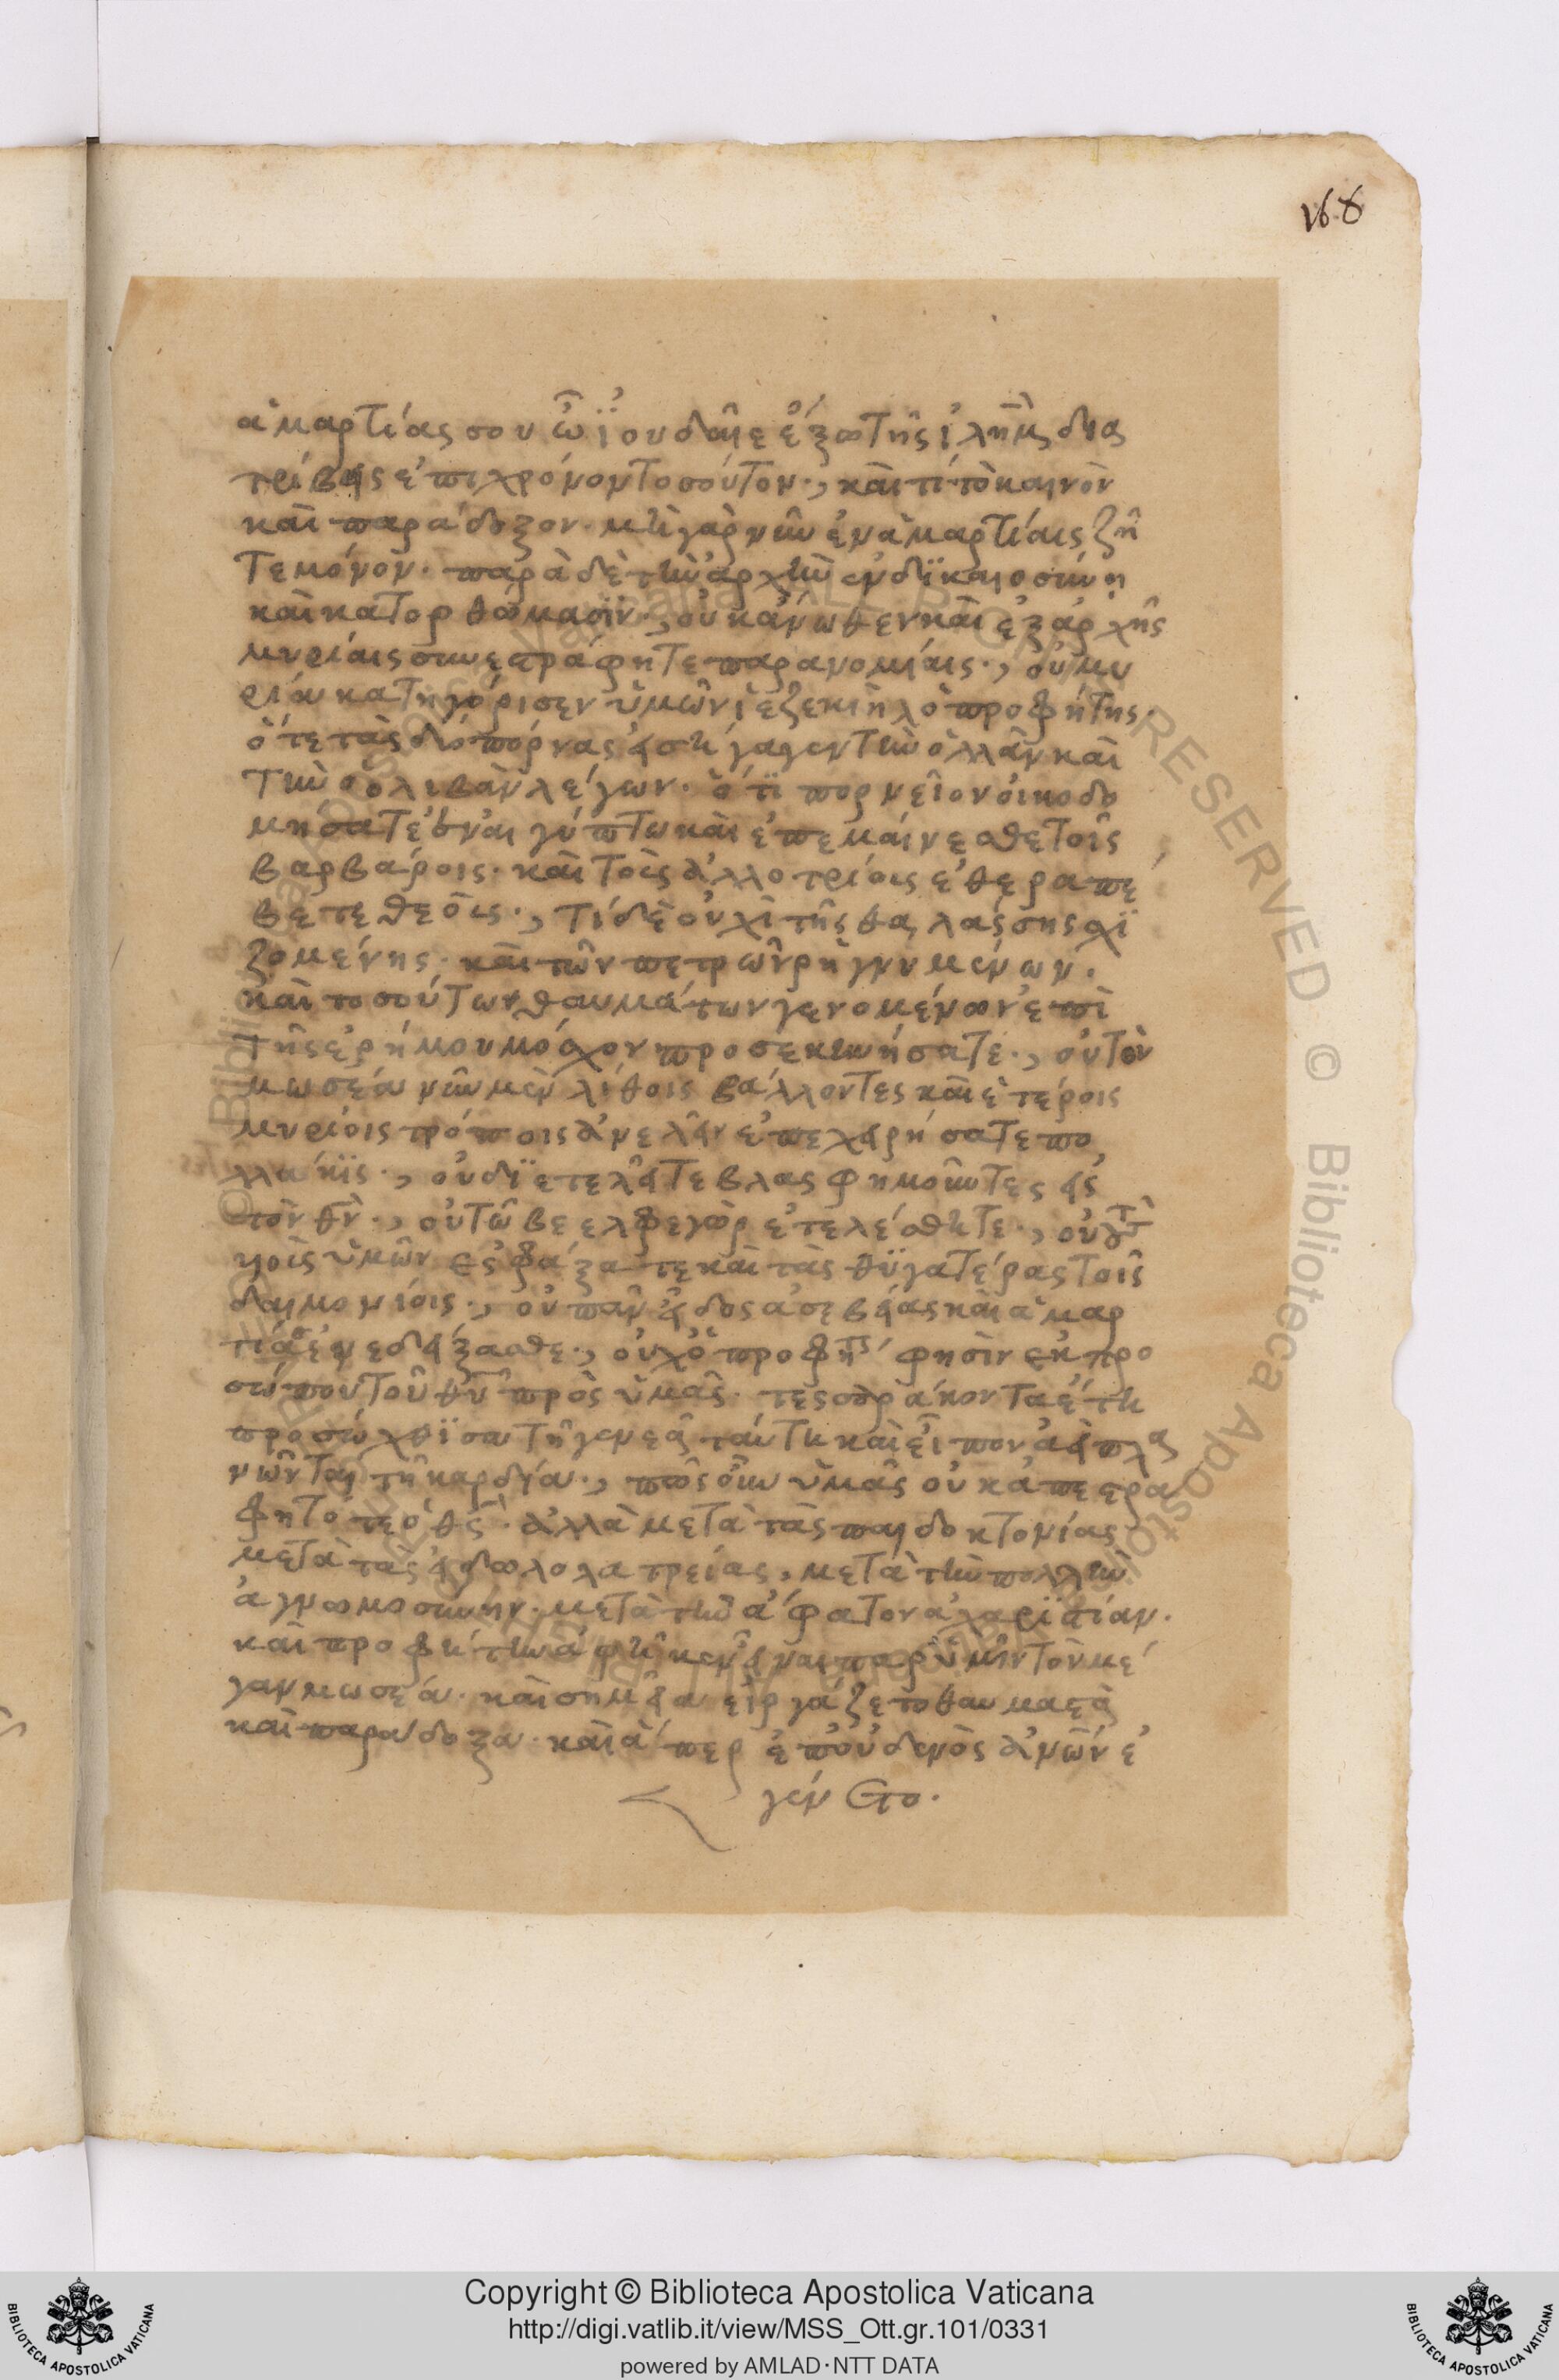 168
ἁμαρτίας σου ὦ ἰουδαῖε ἔξω τῆς ἱλὴμ δια
τρίβεις ἐπι χρόνον τοσούτον·, καὶ τί τὸ καινὸν
καὶ παράδοξον· μὴ γὰρ νῦν ἐν ἁμαρτίαις ζῆ
τε μόνον· παρὰ δὲ τὴν ἀρχὴν ἐν δϊκαιοσύνη
καὶ κατορθώμασϊν·, οὐκ ἄνωθεν καὶ ἐξ ἀρχῆς
μυρίαις συνεστράφητε παρανομίαις·, οὐ μυ
ρία κατηγόρισεν ὑμῶν ἰεζεκιὴλ ὁ προφήτης·
ὅτε τὰς δύο πόρνας εἰσήγαγεν τὴν ὀλλὰν καὶ
τὴν ολιβὰν λέγων· ὅτϊ πορνεῖον οἰκοδο
μήσατε ἐν αἰγύπτω καὶ ἐπεμαίνεσθε τοῖς
βαρβάροις· καὶ τοῖς ἀλλοτρίοις ἐθεραπέ
βετε θεοῖς·, τί δὲ οὐχὶ τῆς θαλάσσης σχϊ
ζομένης· καὶ τῶν πετρῶν ρηγνυμένων·
καὶ τοσούτων θαυμάτων γενομένων ἐπὶ
τῆς ἐρήμου μόσχον προσεκυνήσατε·, οὐ τὸν
μωσέα νῦν μὲν λίθοις βάλλοντες καὶ ἑτέροις
μυρίοις τρόποις ἀνελεῖν ἐπεχειρήσατε πο
λλάκϊς·, οὐ δϊετελεῖτε βλασφημοῦντες εἰς
τὸν θν·, οὐ τῶ βεελφεγὼρ ἐτελέσθητε·, οὐ τ
υοὶς ὑμῶν ἐσφάξατε καὶ τὰς θϋγατέρας τοῖς
δαιμονίοις·, οὐ πᾶν εἶδος ἀσεβείας καὶ ἁμαρ
τίας ἐνεδείξασθε·, οὐχ ὁ προφήτς φησὶν ἐκ προ
σώπου τοῦ θυ πρὸς ὑμᾶς· τεσσαράκοντα ἔτη
προσώχθϊσα τῆ γενεᾶ ταύτη καὶ εἶπον ἀεὶ πλα
νῶνται τῆ καρδία·, πῶς οὖν ὑμᾶς οὐκ ἀπεστρά
φη τότε ὁ θς· ἀλλὰ μετὰ τὰς παιδοκτονίας
μετὰ τὰς εἰδωλολατρείας, μετὰ τὴν πολλὴν
ἀγνωμοσύνην· μετὰ τὴν ἄφατον ἀχαρϊστίαν·
καὶ προφήτην ἀφῆκεν εἶναι παρ ὑμῖν τὸν μέ
γαν μωσέα· καὶ σημεῖα εἰργάζετο θαυμαστὰ
καὶ παράδοξα· καὶ ἅπερ ἐπ οὐδενὸς ἀνων ἐ
γένετο·
Copyright © Biblioteca Apostolica Vaticana
http://digi.vatlib.it/view/MSS_Ott.gr.101/0331
powered by AMLAD·NTT DATA